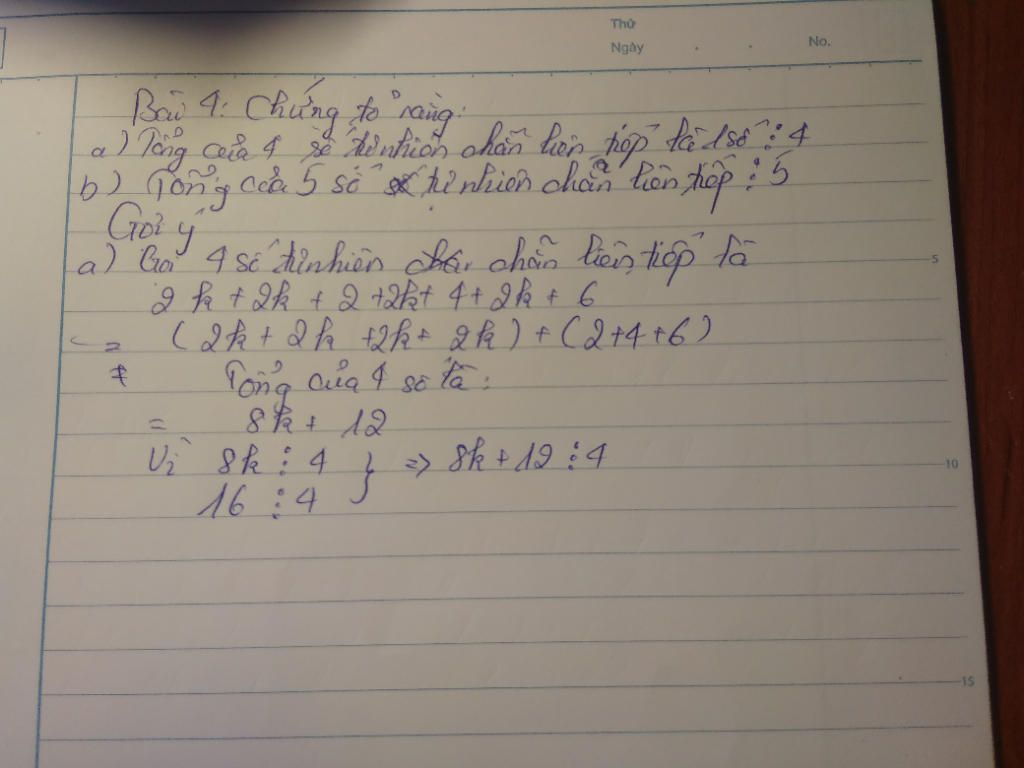 Thứ
Ngày . . No.
Bài 4: Chứng tỏ rằng:
a) Tổng của 4 số tự nhiên chẵn liên tiếp là 1 số ⋮ 4
b) Tổng của 5 số tự nhiên chẵn liên tiếp ⋮ 5
Gợi ý
a) Gọi 4 số tự nhiên chẵn liên tiếp là
5
2k + 2k + 2 + 2k + 4 + 2k + 6
= (2k + 2k + 2k + 2k) + (2+4+6)
Tổng của 4 số là:
= 8k + 12
Vì 8k ⋮ 4 } => 8k + 12 ⋮ 4
10
16 ⋮ 4
15